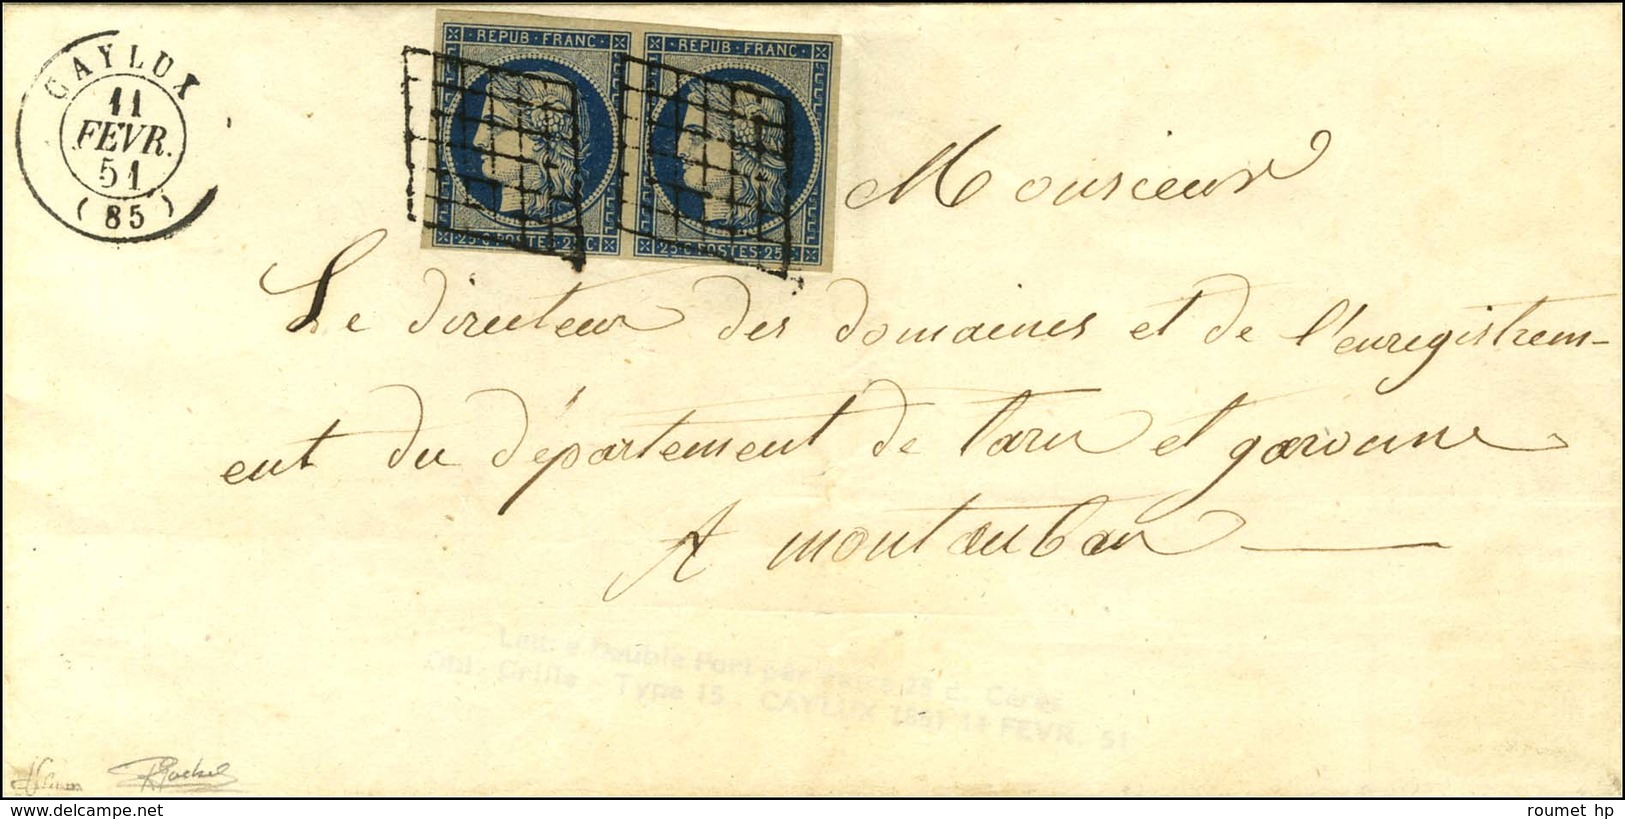 CAYLUX
11
FEVR.
51
(85)
REPUB·FRANC
REPUB·FRANC
25·C·POSTES·25·C
25·C·POSTES·25
Monsieur
Le directeur des domaines et de l'enregistrem-
ent du département de tarn et garonne
A montauban
Lettre Double Port par 25 c. Ceres
Obl. Grille - Type 15 - CAYLUX (85) 11 FEVR. 51
roumet hp